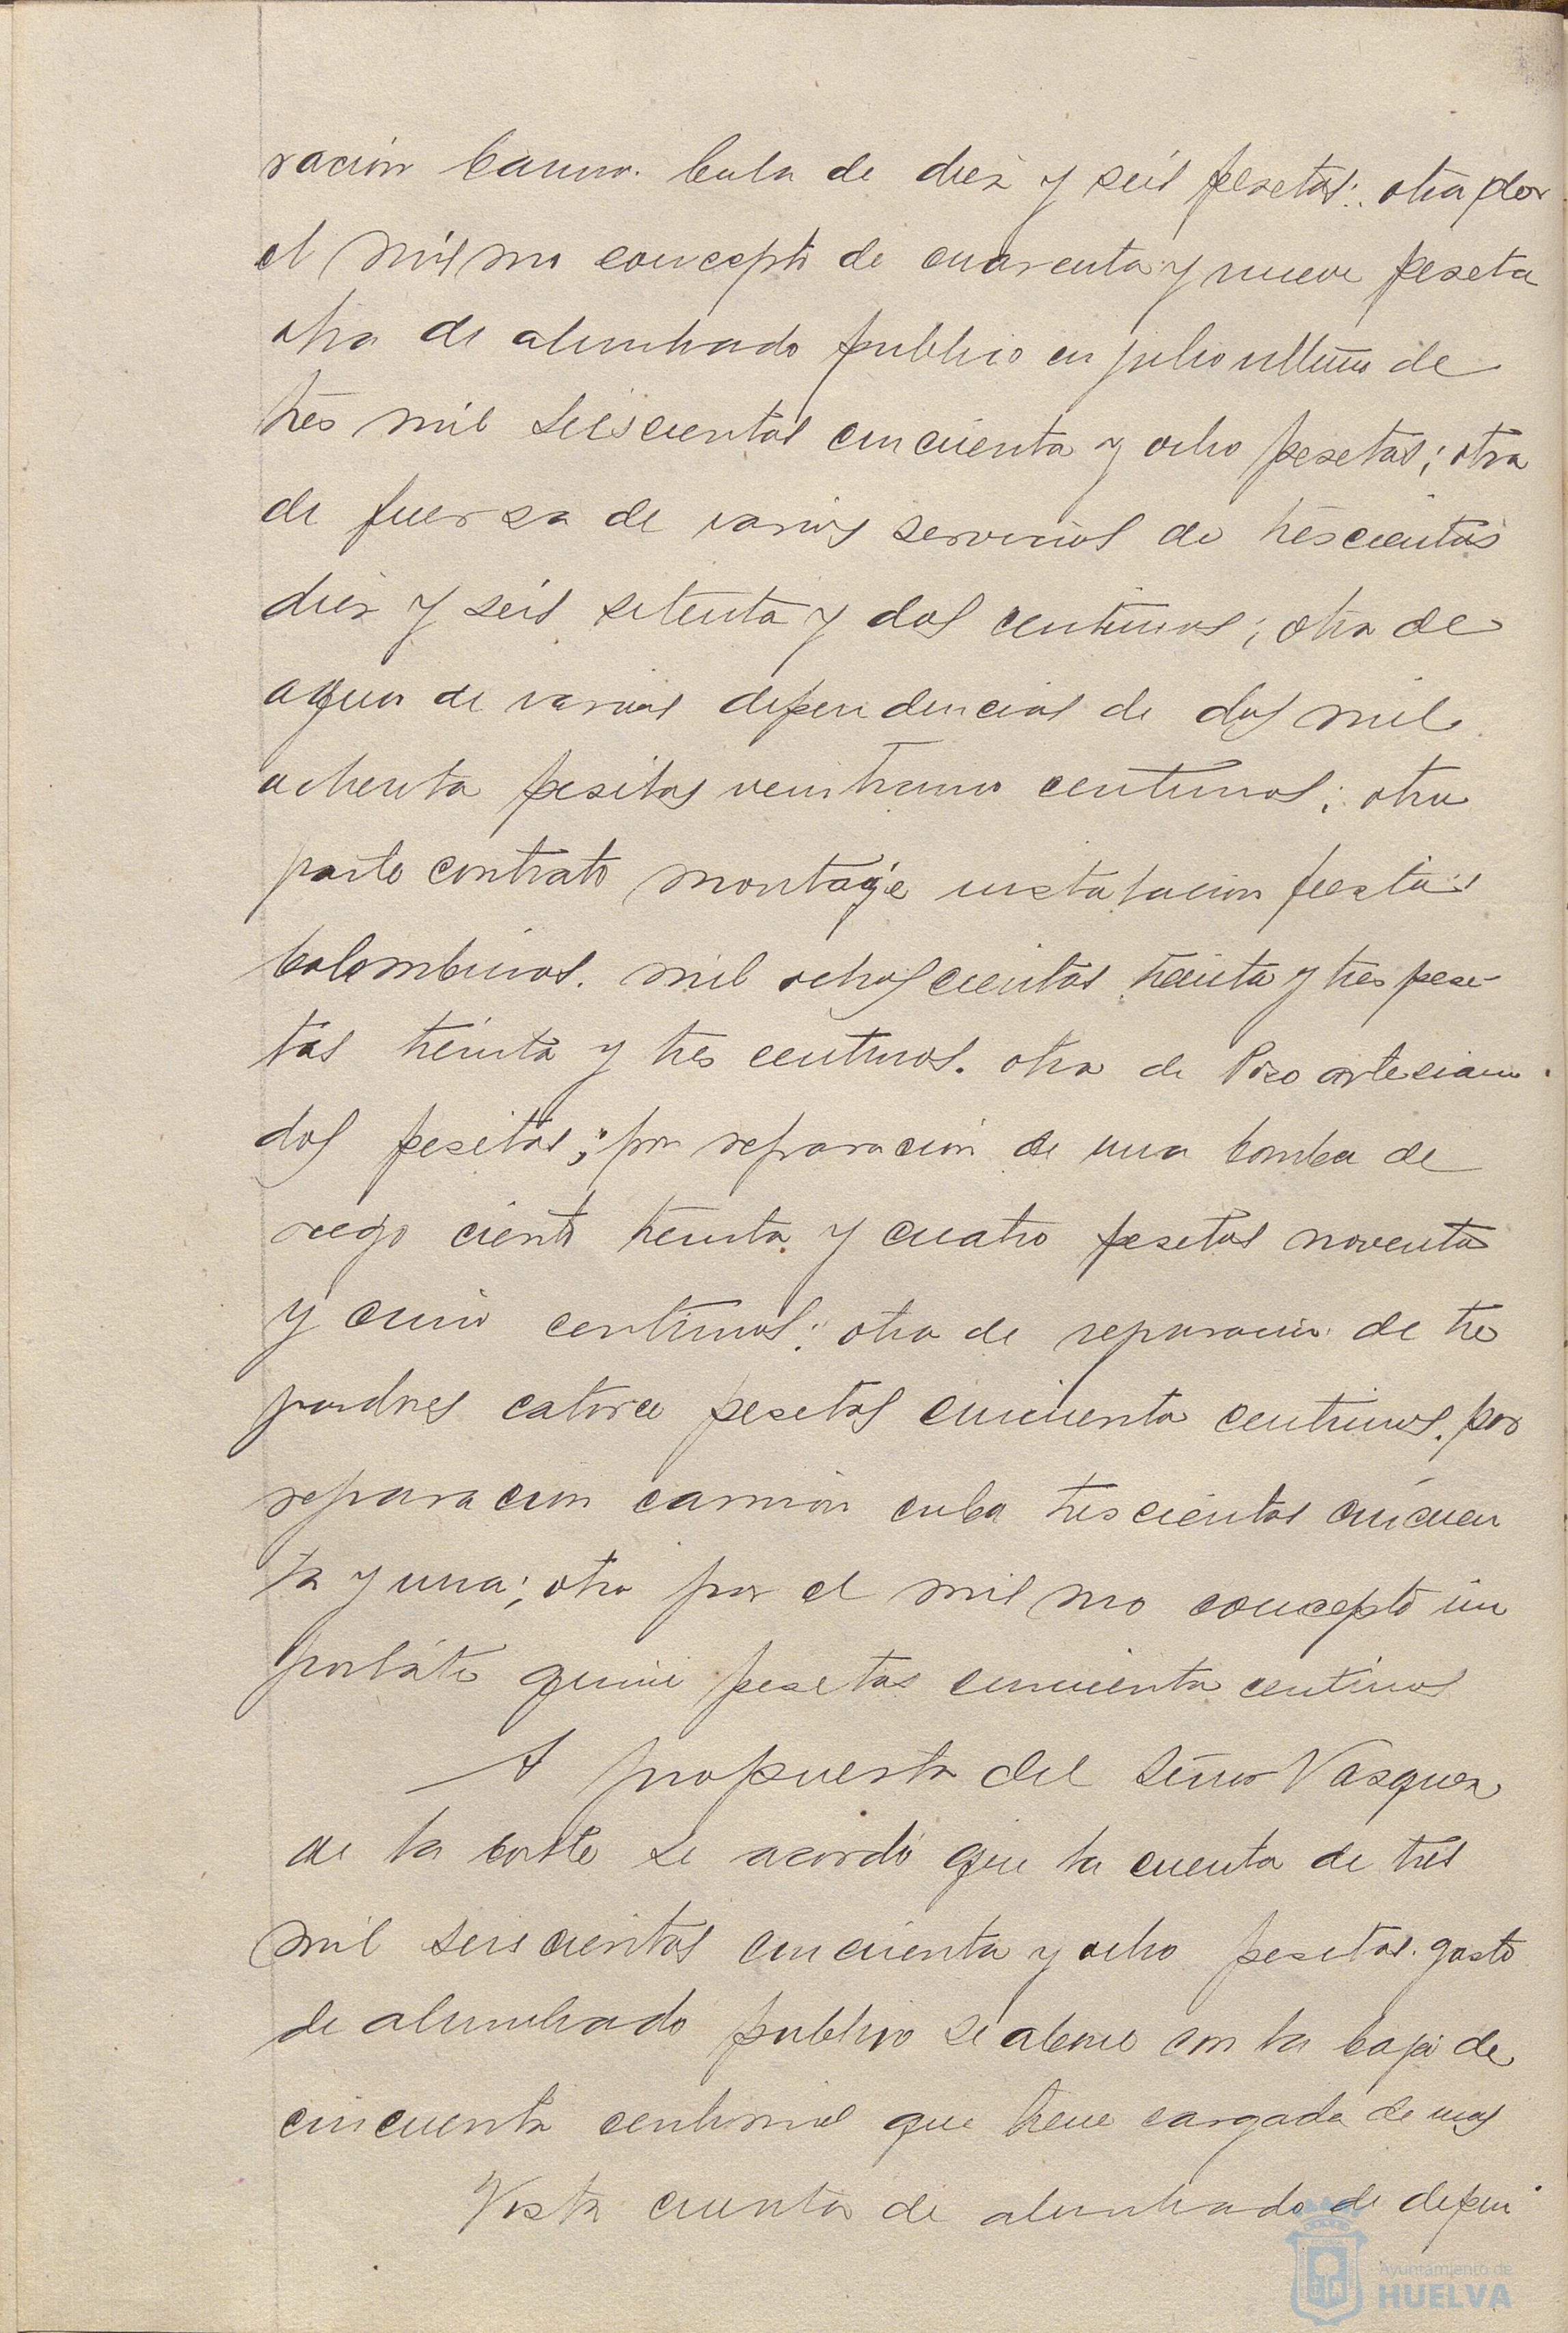 ración camión Cuba de diez y seis pesetas: otra por
el mismo concepto de cuarenta y nueve peseta
otra de alumbrado publico en julio ultimo de
tres mil seiscientas cincuenta y ocho pesetas; otra
de fuerza de varios servicios de trescientas
diez y seis setenta y dos centimos; otra de
agua de varias dependencias de dos mil
ochenta pesetas veintiuno centimos; otra
parte contrato montage instalacion fiestas
Colombinas. mil ochoscientas treinta y tres pese-
tas treinta y tres centimos. otra de Pozo artesiano
dos pesetas; por reparacion de una bomba de
riego ciento treinta y cuatro pesetas noventa
y cinco centimos: otra de reparacion de tre
paredres catorce pesetas cincuenta centimos. por
reparacion camion cuba trescientas cincuen
ta y una; otra por el mismo concepto im
portate quince pesetas cincuenta centimos
A propuesta del señor Vazquez
de la Corte se acordó que la cuenta de tres
mil seiscientas cincuenta y ocho pesetas. gasto
de alumbrado publico se abone con la baja de
cincuenta centimos que tiene cargada de mas
Vista cuenta de alumbrado de depen
Ayuntamiento de
HUELVA